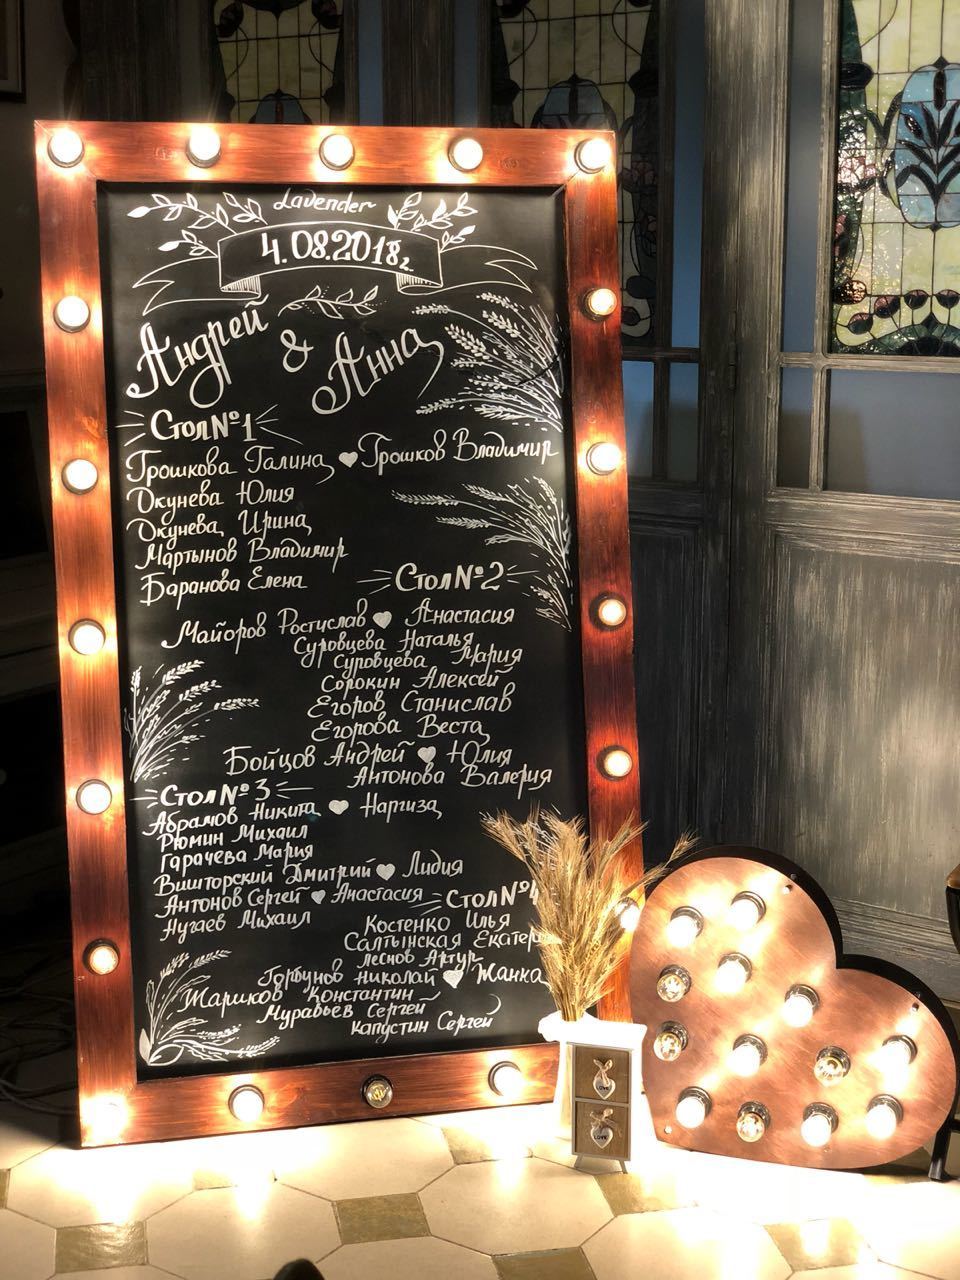 Lavender
4.08.2018г.
Андрей & Анна
Стол №1
Грошкова Галина Грошков Владимир
Окунева Юлия
Окунева Ирина
Мартынов Владимир
Баранова Елена
Стол №2
Майоров Ростислав Анастасия
Суровцева Наталья
Суровцева Мария
Сорокин Алексей
Егоров Станислав
Егорова Веста
Бойцов Андрей Юлия
Антонова Валерия
Стол №3
Абрамов Никита Наргиза
Рюмин Михаил
Гарачева Мария
Вишторский Дмитрий Лидия
Антонов Сергей Анастасия
Нугаев Михаил
Стол №4
Костенко Илья
Салтынская
Леснов Артур
Горбунов Николай Жанна
Жариков Константин
Муравьев Сергей
Капустин Сергей
LOVE
LOVE